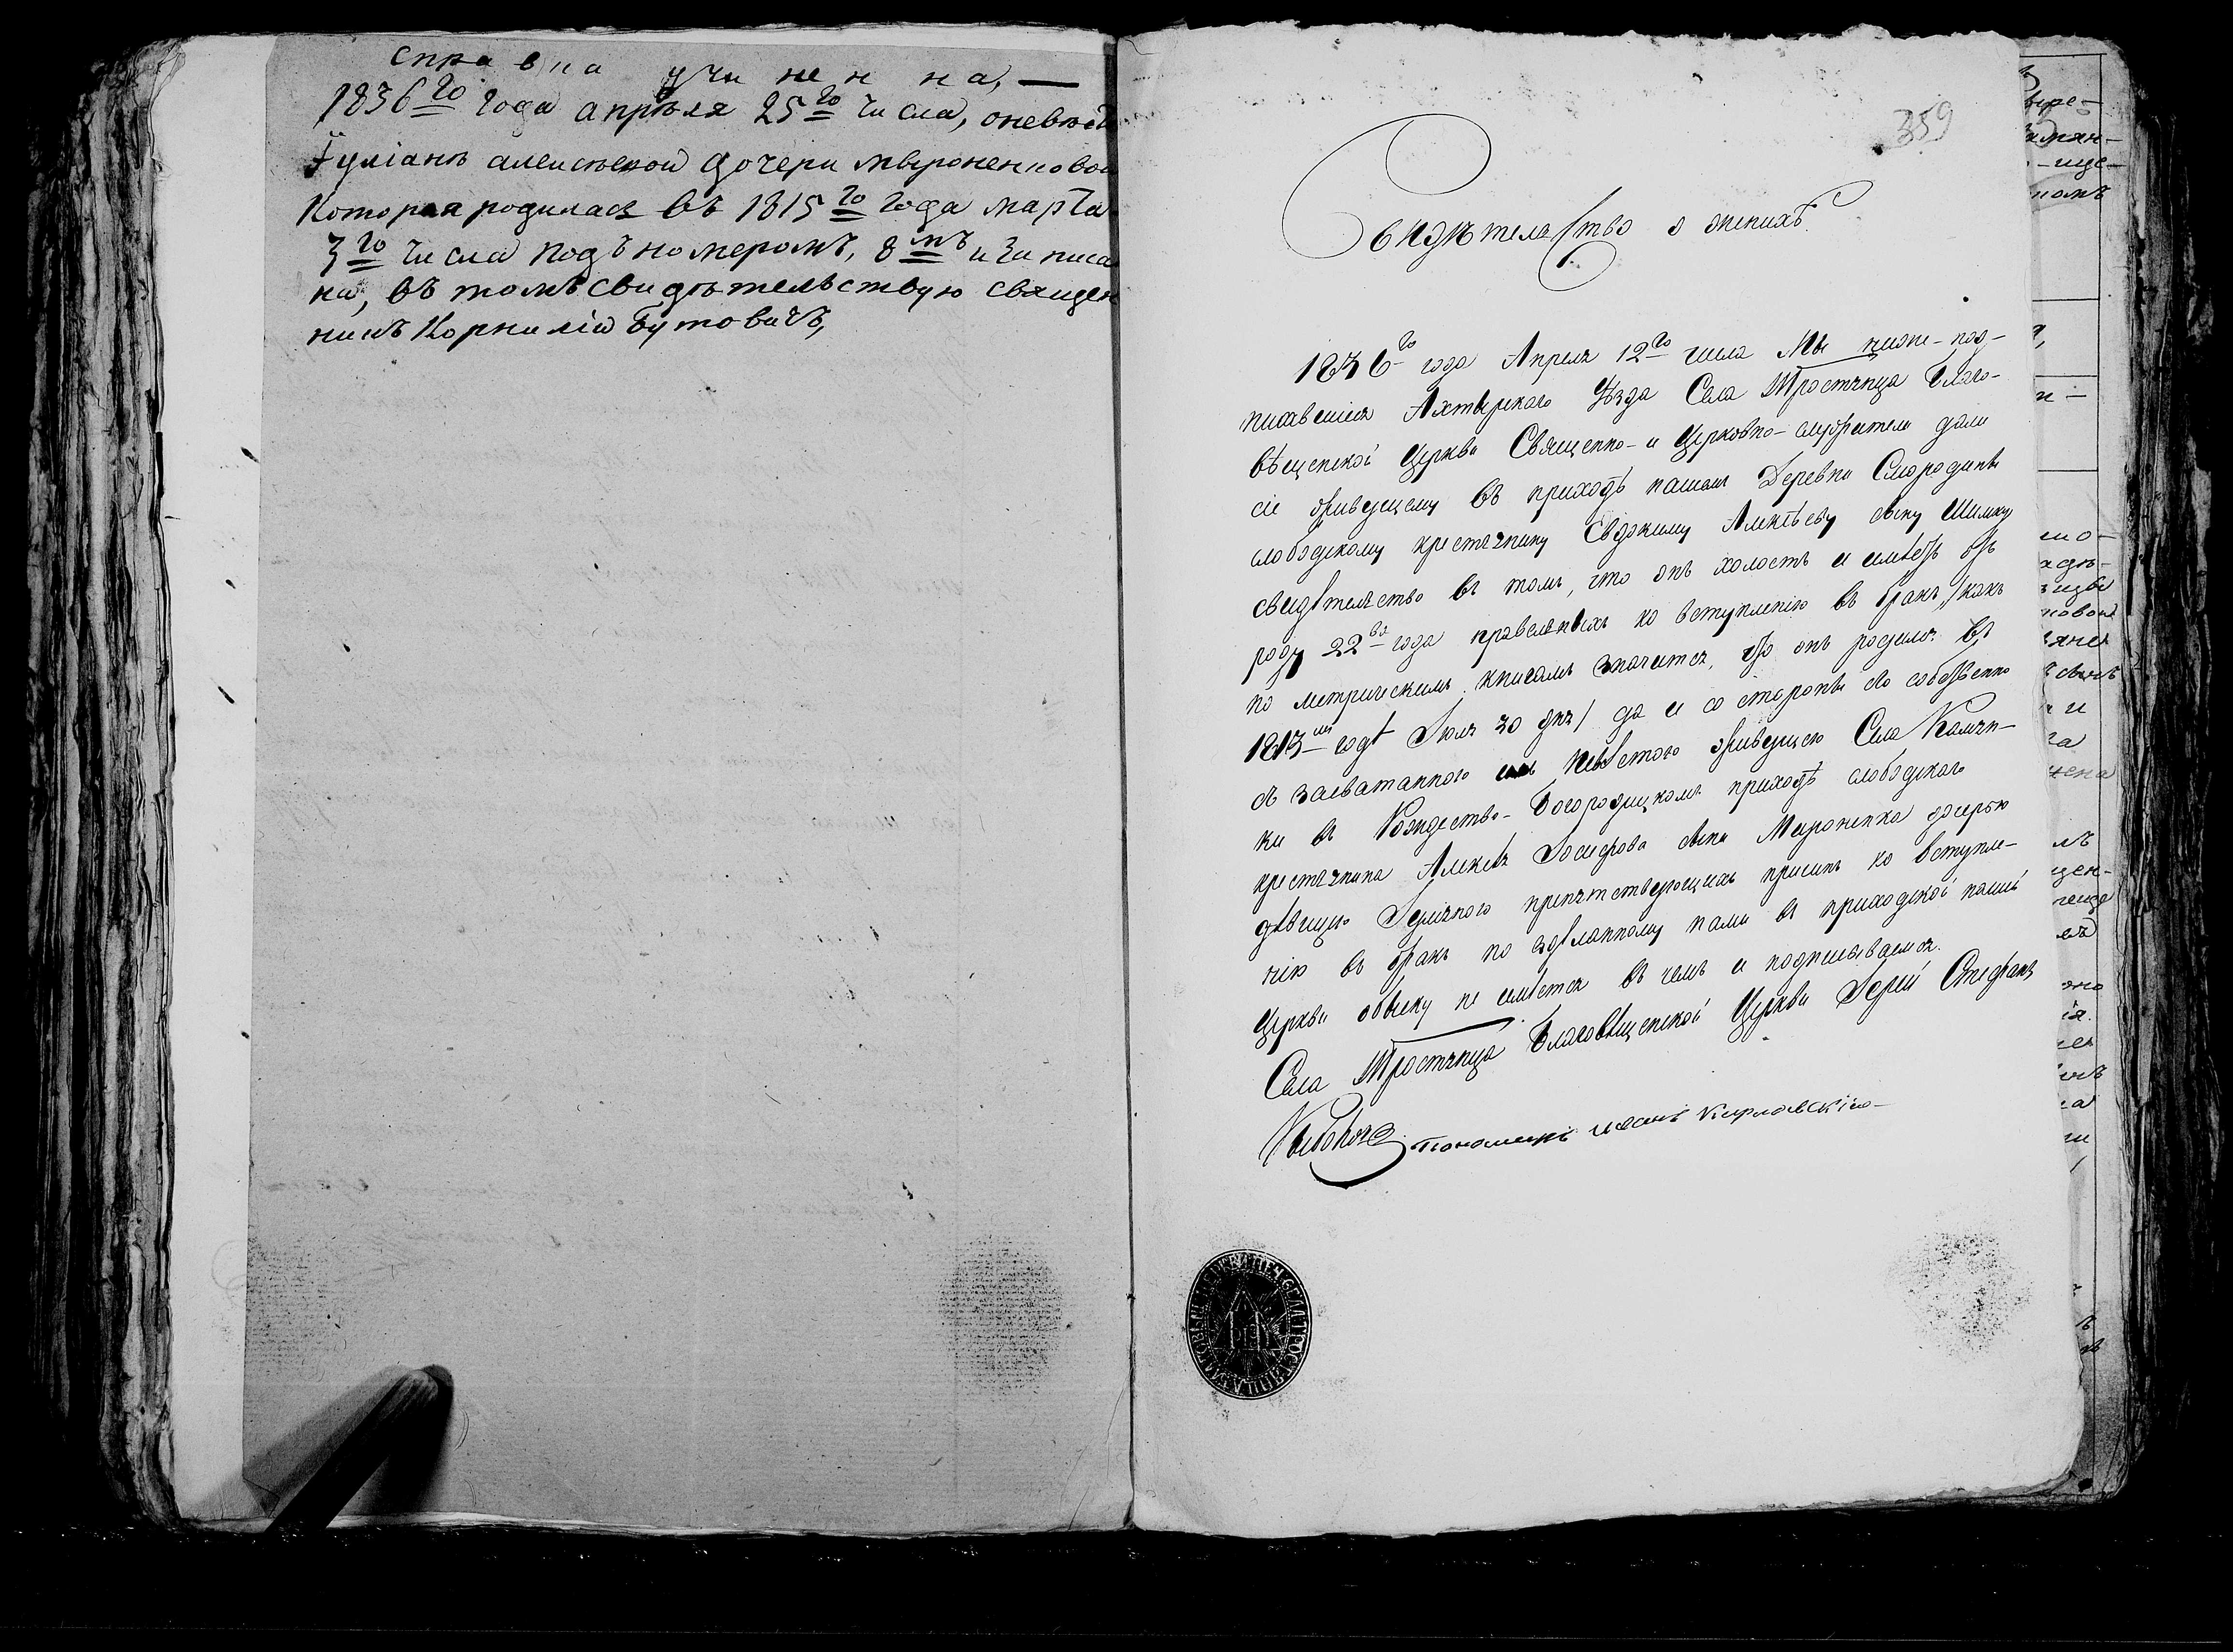 справка учиненна, —
1836го года апрѣля 25го числа, оневѣст
Їуліанѣ алексѣевой дочери мвроненковой
Которая родилася въ 1815го Года марта
3го числа подъ номеромъ, 8мъ и записа
на, въ томъ свидѣтельствую священ
никъ Корнилій Бутовичъ,
359
Свидѣтельство о женихѣ.
1836го года Апреля 12го числа Мы ниже-под-
писавшіися Ахтырского Уѣзда Села Тростянца Благо-
вѣщенской Церкви Священно- и Церковно-служители дали
сіе живущему въ приходѣ нашемъ Деревни Смородины
слободскому крестьянину Евдокиму Алексѣеву сыну Шимку
свидѣтельство въ томъ, что онъ холостъ и имѣетъ отъ
роду 22ва года правеляныхъ ко вступленію въ бракъ /какъ
по метрическимъ книгамъ значится, что онъ родился въ
1813мъ годѣ Іюля 30 дня/ да и со стороны его собственно
съ засватанною имъ невѣстою живущею Села Камян-
ки въ Рождество-Богородицкомъ приходѣ слободского
крестьянина Алексѣя Іосифова сына Мироненка дочерью
дѣвицею Іуліаною препятствующихъ причинъ ко вступле-
нію въ бракъ по здѣланному нами въ приходской нашей
Церкви обыску не имѣется въ чемъ и подписываемся.
Села Тростянца Благовѣщенской Церкви Іерей Стефанъ
пономарь Иванъ